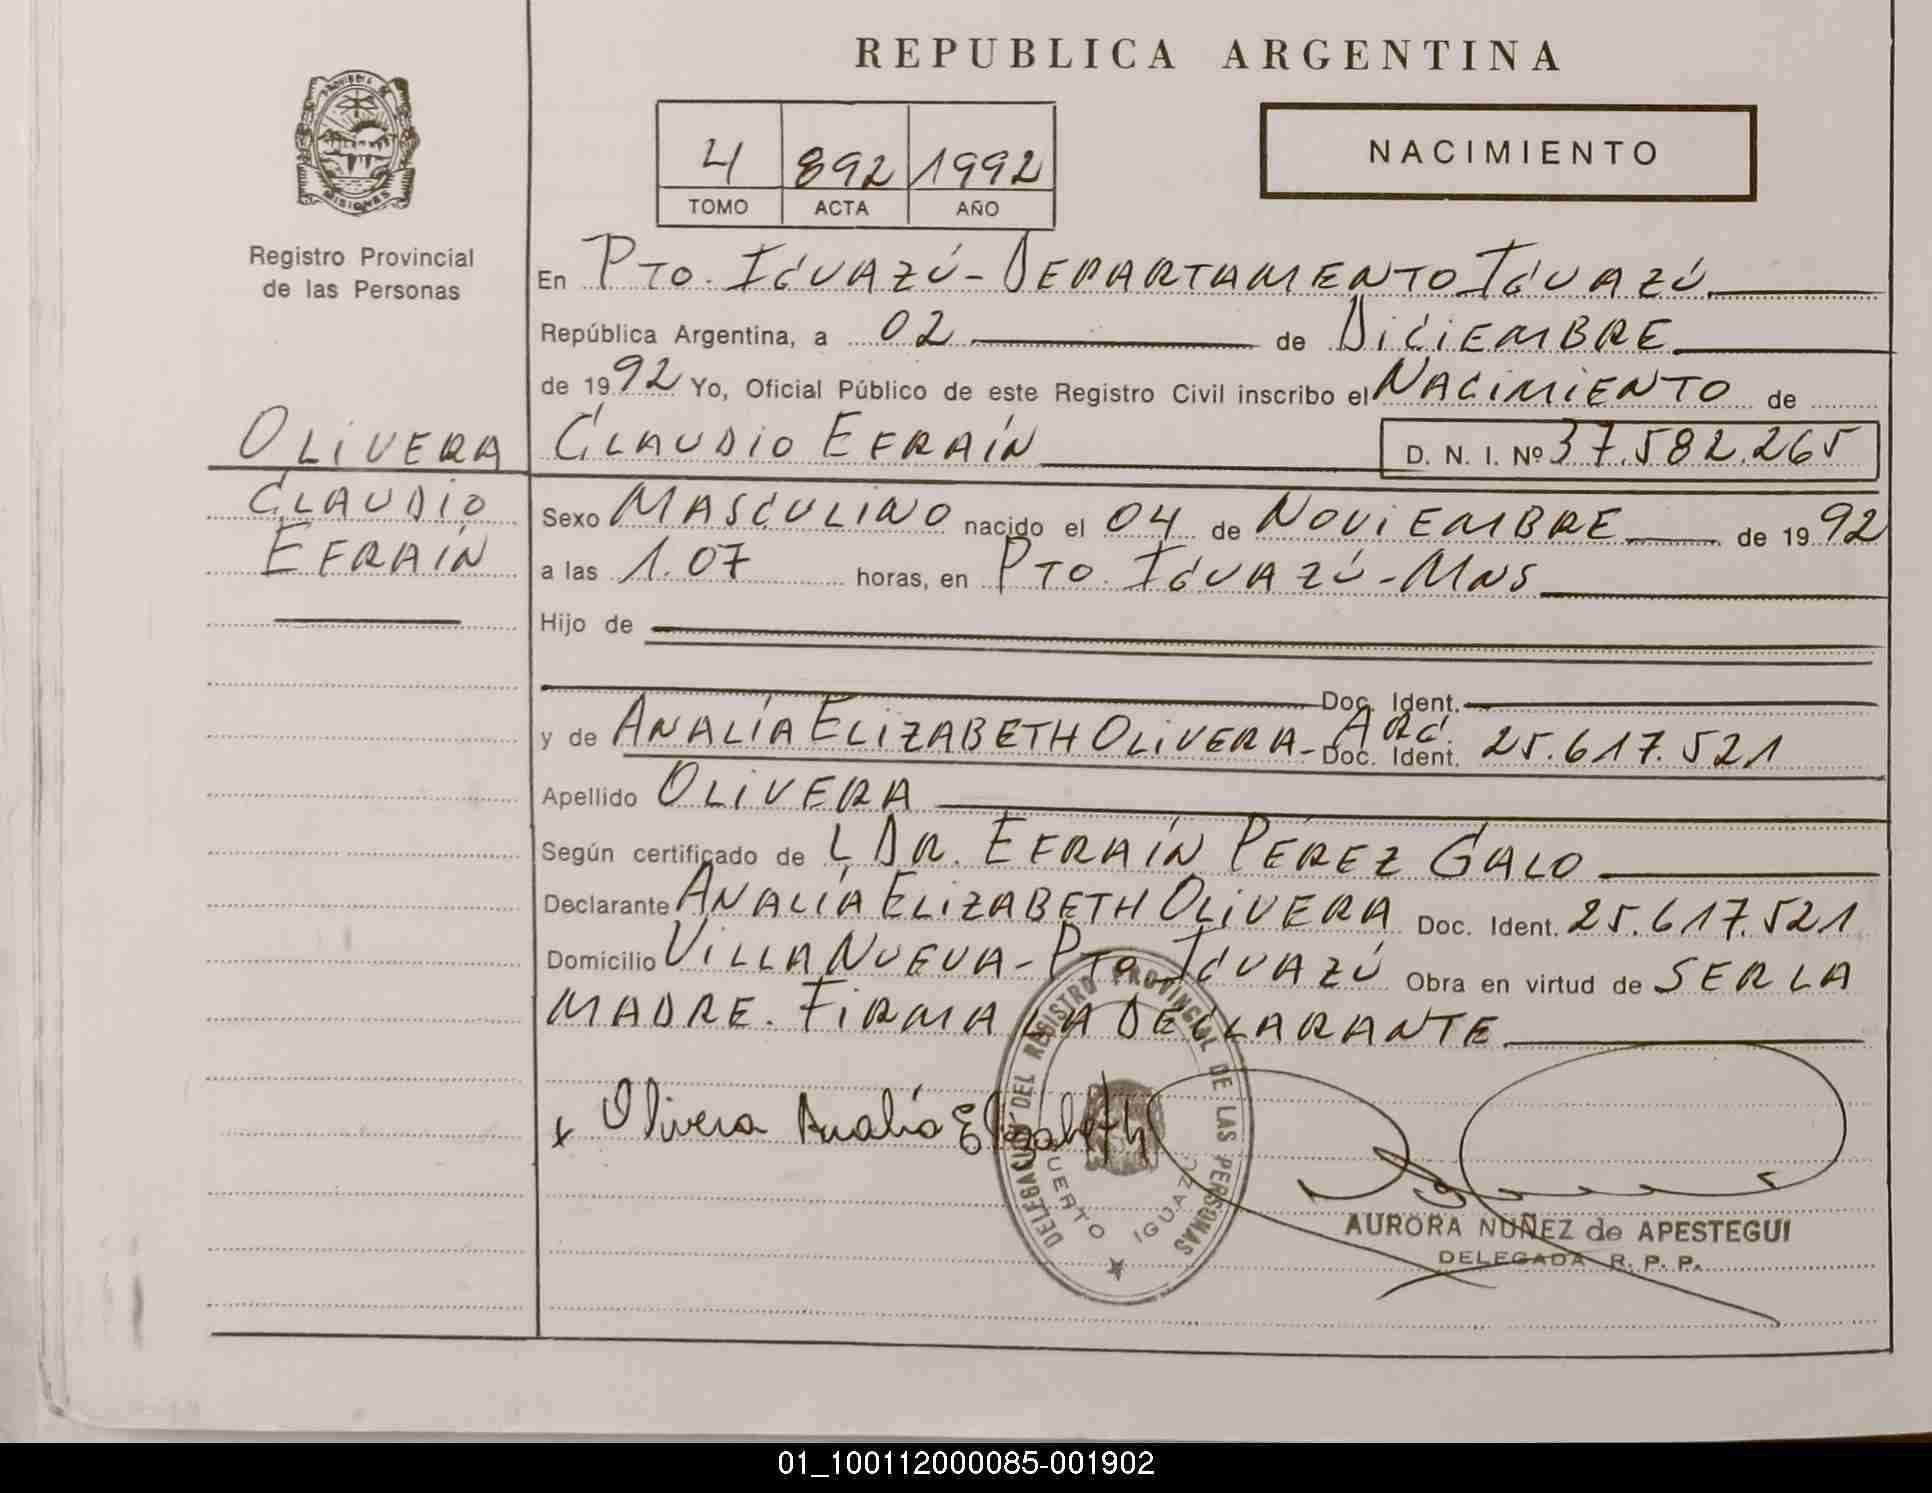 REPUBLICA ARGENTINA
PROVINCIA DE
MISIONES
Registro Provincial
de las Personas
4 892 1992
TOMO ACTA AÑO
NACIMIENTO
En PTO. IGUAZÚ - DEPARTAMENTO IGUAZÚ
República Argentina, a 02 de DICIEMBRE
de 1992 Yo, Oficial Público de este Registro Civil inscribo el NACIMIENTO de
OLIVERA CLAUDIO EFRAÍN D. N. I. Nº 37.582.265
CLAUDIO
EFRAÍN
Sexo MASCULINO nacido el 04 de NOVIEMBRE de 1992
a las 1.07 horas, en PTO. IGUAZÚ - MNS
Hijo de
Doc. Ident.
y de ANALÍA ELIZABETH OLIVERA - ARG. Doc. Ident. 25.617.521
Apellido OLIVERA
Según certificado de DR. EFRAÍN PEREZ GALO
Declarante ANALÍA ELIZABETH OLIVERA Doc. Ident. 25.617.521
Domicilio VILLA NUEVA - PTO. IGUAZÚ Obra en virtud de SER LA
MADRE. FIRMA LA DECLARANTE
x Olivera Analía Elizabeth
DELEGACION DEL REGISTRO PROVINCIAL DE LAS PERSONAS
PUERTO IGUAZU
AURORA NUÑEZ de APESTEGUI
DELEGADA R. P. P.
01_100112000085-001902